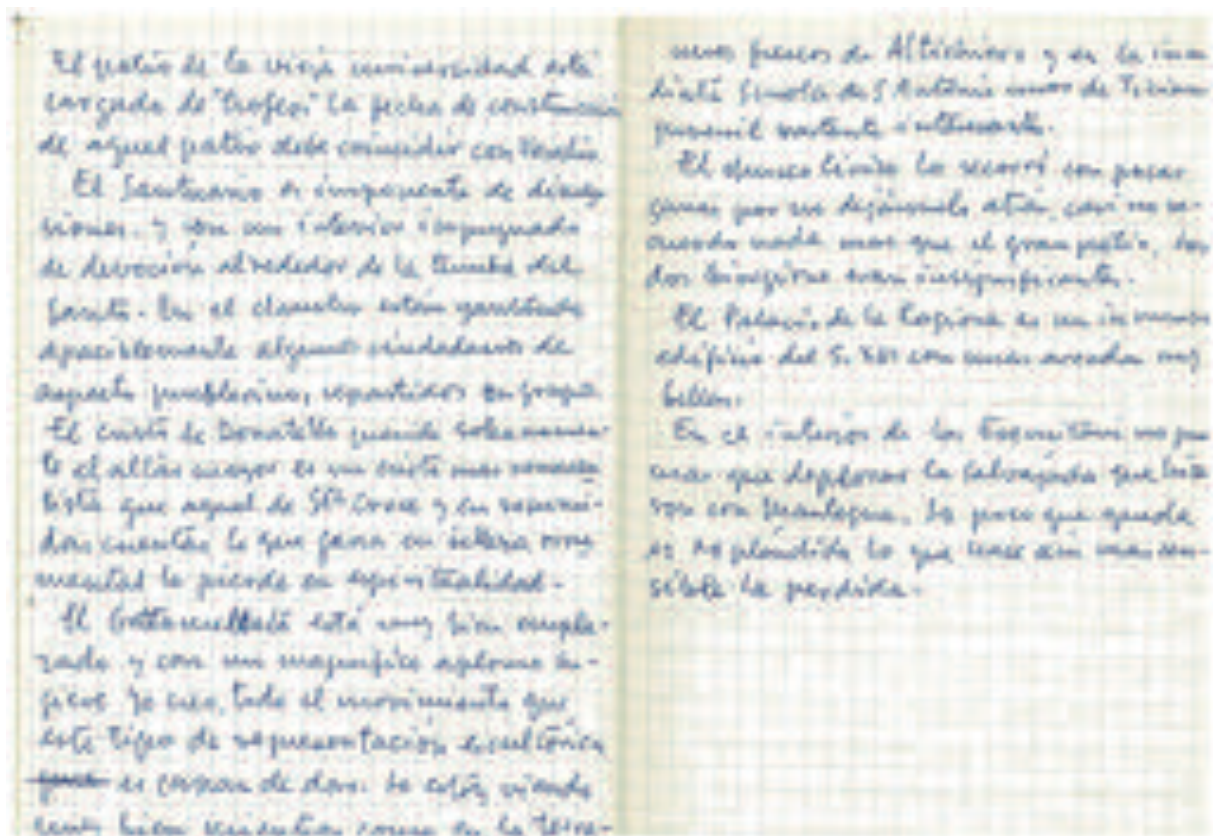 El patio de la vieja universidad está
cargado de "trofeos" La fecha de construcción
de aquel patio debe coincidir con
El Santuario es imponente de dimen
siones. y con un interior impregnado
de devoción alrededor de la tumba del
Santo. En el claustro están
apaciblemente algunos ciudadanos de
aspecto pueblerino, repartidos en grupos
El cristo de Donatello
te el altar mayor es un cristo mas
lista que aquel de Sta Croce y en resumi-
das cuentas lo que gana en belleza
mental lo pierde en espiritualidad.
El Gattamelata está muy bien empla-
zado y con un magnifico aplomo su-
giere yo creo, todo el movimiento que
este tipo de representación escultórica
es capaz de dar. Lo estoy viendo
muy bien como en la
unos frescos de Altichiero y en la inme
diata Scuola de S Antonio unos de Tiziano
juvenil bastante interesante.
El museo Cívico lo recorrí con pocas
ganas por su atán, casi no re-
cuerdo nada mas que el gran patio, los
dos eran insignificantes.
El Palacio de la Ragione es un inmenso
edificio del S. con unas arcadas muy
bellas.
En el interior de los Eremitani no
mas que deplorar la salvajada que hicie
ron con Mantegna. Lo poco que queda
es resplandido lo que hace aún mas sen-
sible la perdida.